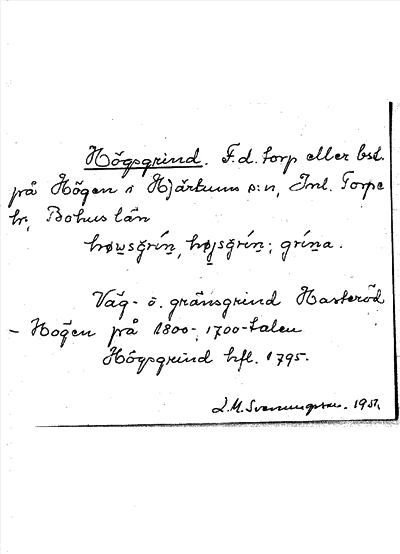 Högsgrind. F.d. torp eller bst.
på Högen i Hjärtums s:n, Inl. Torpe
hr, Bohus län
høwsgrín, højsgrín; grína.
Väg- o. gränsgrind Hasteröd
- Högen på 1800-, 1700-talen
Högsgrind hfl. 1795.
L.M. Svenungsson. 1951.